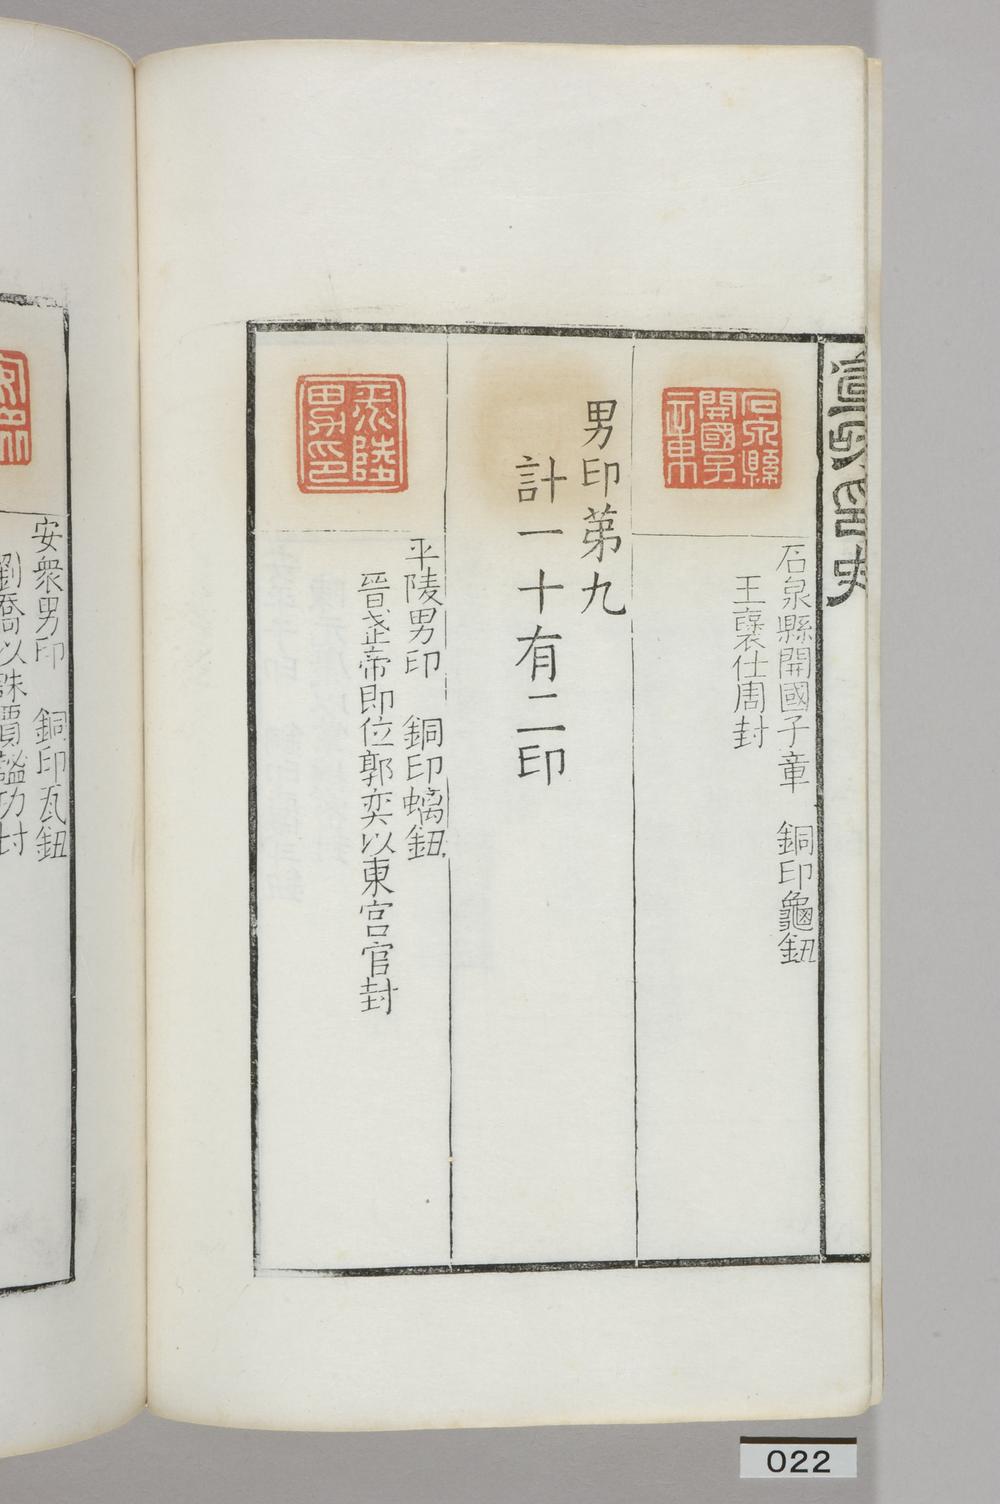 宣和印史
石泉縣開國子章　銅印龜鈕
王襃仕周封
男印苐九
計一十有二印
平陵男印
平陵男印　銅印螭鈕
晉武帝即位郭奕以東宮官封
安衆男印　銅印瓦鈕
劉喬以誅賈謐功封
022